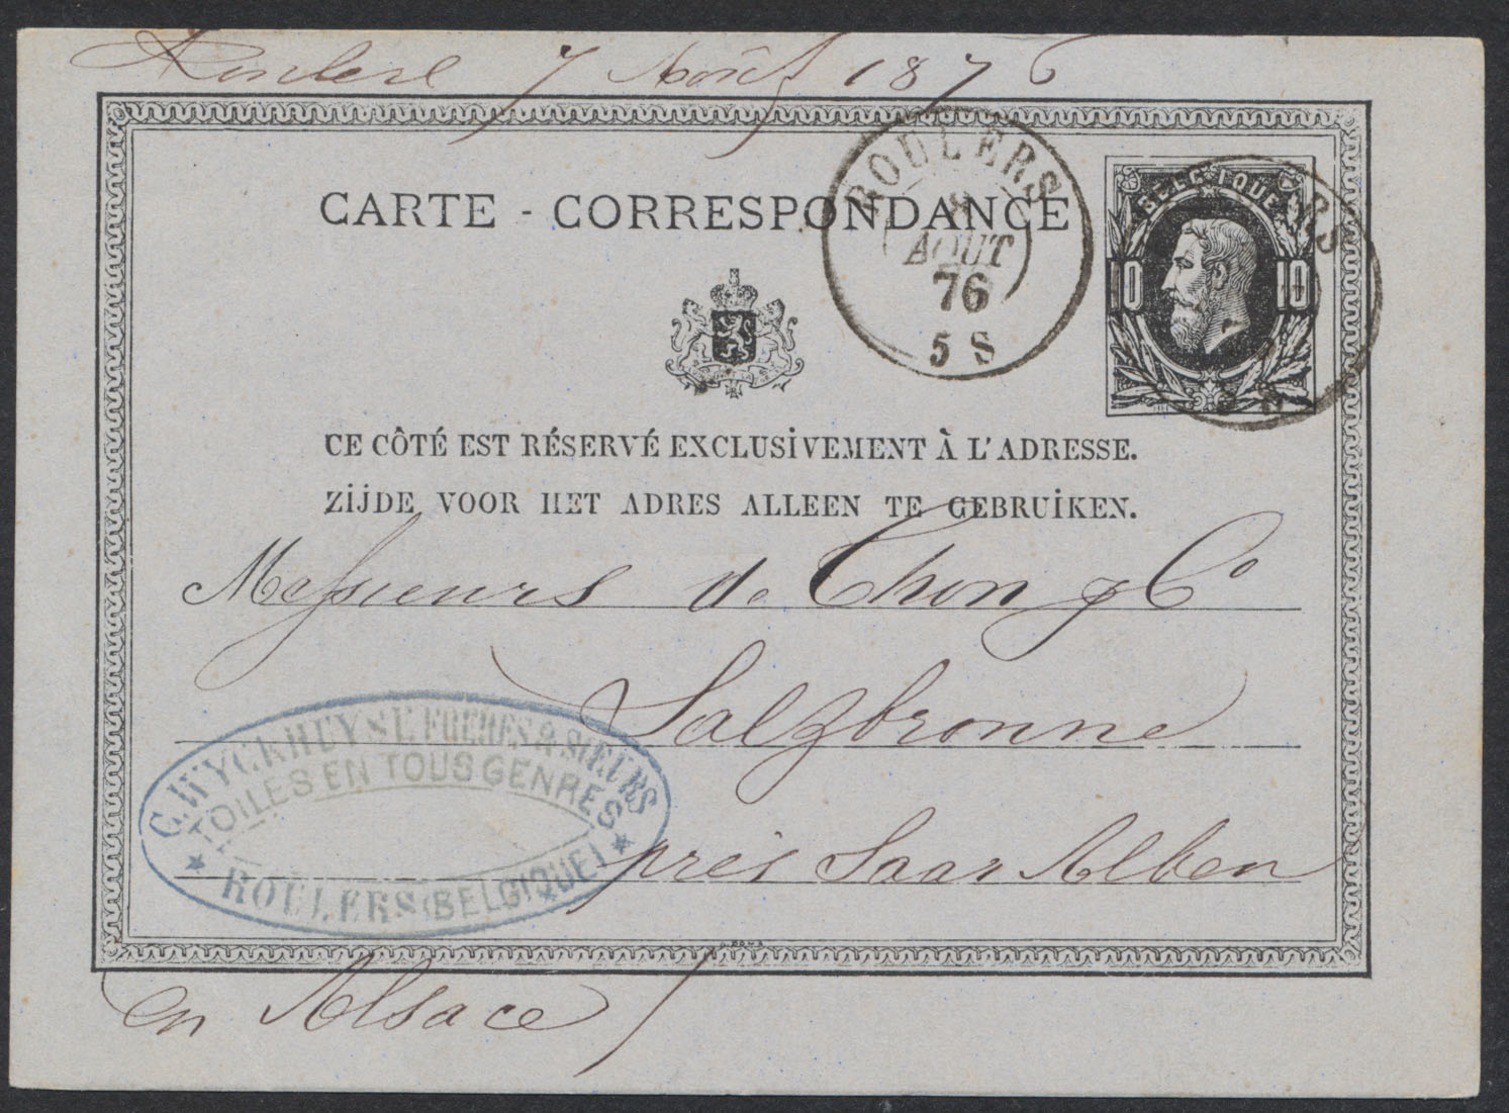 Roulers 7 Août 1876
CARTE - CORRESPONDANCE
ROULERS
AOUT
76
5 S
BELGIQUE
10 10
CE CÔTÉ EST RÉSERVÉ EXCLUSIVEMENT À L'ADRESSE.
ZIJDE VOOR HET ADRES ALLEEN TE GEBRUIKEN.
Messieurs de Thon & Co
Salzbronne
près Saar Alben
en Alsace
C. WYCKHUYSE FRERES & SŒURS
TOILES EN TOUS GENRES
ROULERS (BELGIQUE)